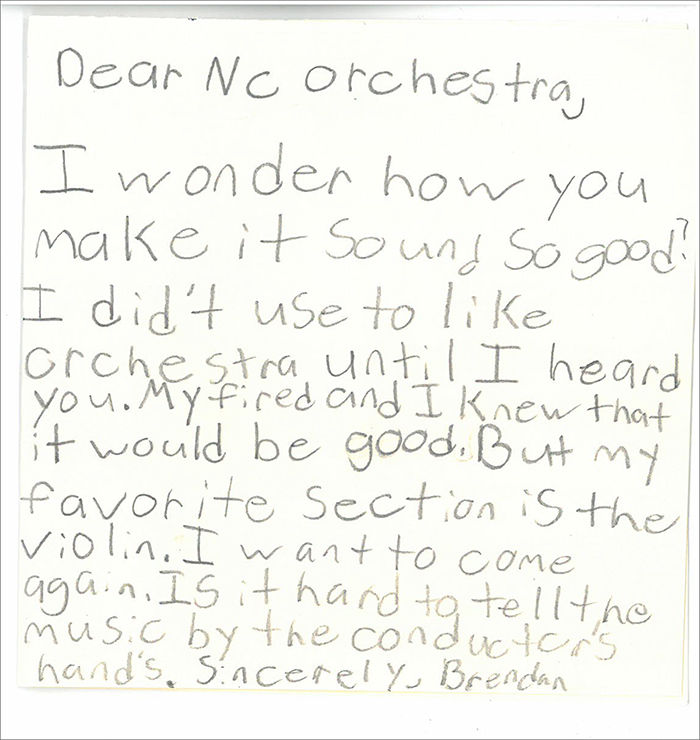 Dear Nc orchestra,
I wonder how you
make it sound so good?
I did't use to like
orchestra until I heard
you. My fired and I knew that
it would be good. Butt my
favorite section is the
violin. I want to come
again. Is it hard to tell the
music by the conductor's
hand's. Sincerely, Brendan